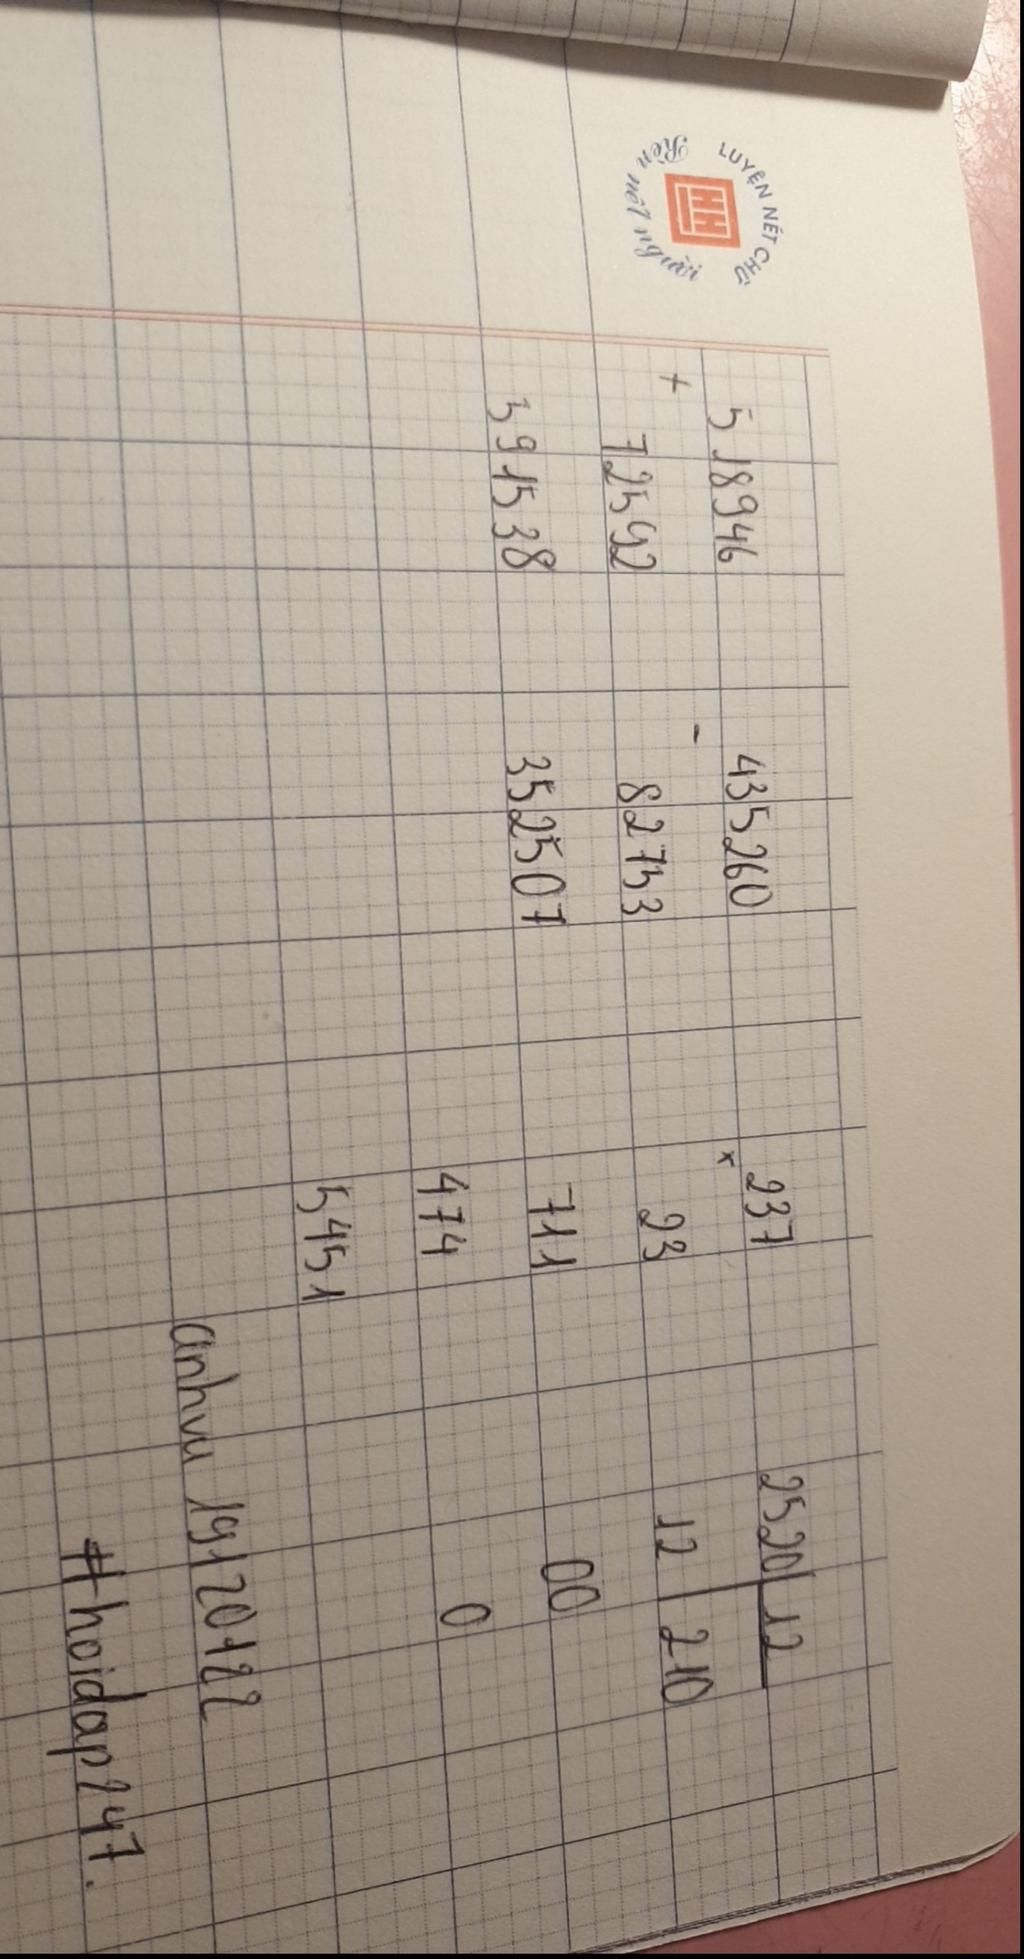 LUYỆN NÉT CHỮ
Rèn nết người
HH
518946
+
72592
591538
435260
-
82753
352507
237
×
23
711
474
5451
2520 12
12 210
00
0
anhvu 19120122
#hoidap247.